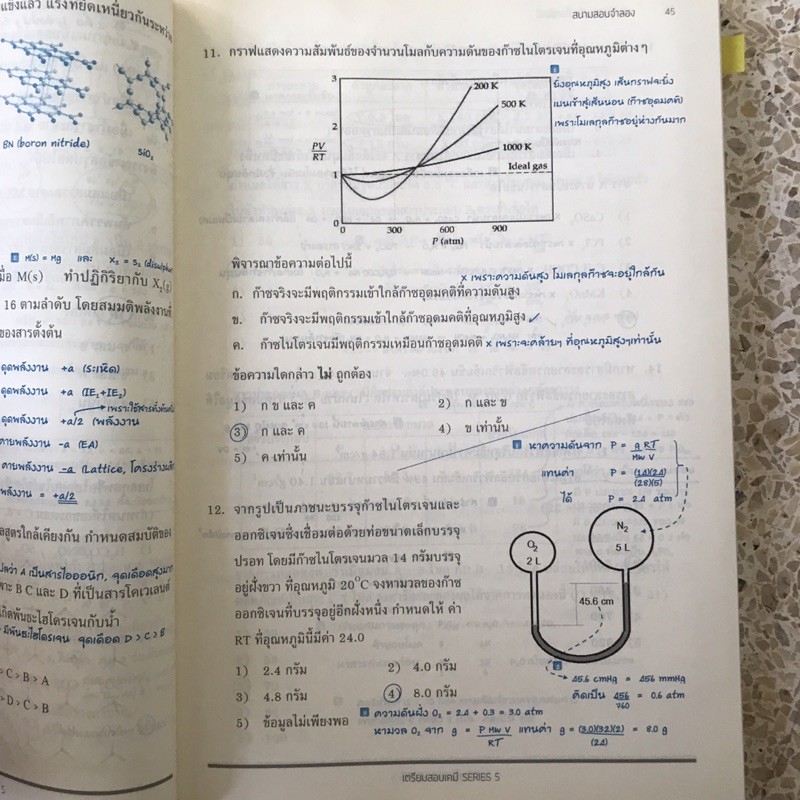 แข็งแล้ว แรงที่ยึดเหนี่ยวกันระหว่าง
BN (boron nitride)
SiO₂
M(s) = Mg และ
มื่อ M(s) ทำปฏิกิริยากับ X₂(g)
16 ตามลำดับ โดยสมมติพลังงานที่
ของสารตั้งต้น
ดูดพลังงาน +a (ระเหิด)
ดูดพลังงาน +a (IE₁+IE₂)
ดูดพลังงาน +a/2 (พลังงาน
คายพลังงาน -a (EA)
คายพลังงาน -a (Lattice, โครงร่างผลึก
พลังงาน = +a/2
ลสูตรใกล้เคียงกัน กำหนดสมบัติของ
A เป็นสารไอออนิก, จุดเดือดสูงมาก
าะ B C และ D ที่เป็นสารโคเวเลนต์
กิดพันธะไฮโดรเจนกับน้ำ
มีพันธะไฮโดรเจน จุดเดือด D > C > B
> C > B > A
> D > C > B
สนามสอบจำลอง 45
11. กราฟแสดงความสัมพันธ์ของจำนวนโมลกับความดันของก๊าซไนโตรเจนที่อุณหภูมิต่าง ๆ
PV
RT
3
2
1
0
200 K
500 K
1000 K
Ideal gas
0 300 600 900
P (atm)
ยิ่งอุณหภูมิสูง เส้นกราฟจะยิ่ง
เบนเข้าสู่เส้นนอน (ก๊าซอุดมคติ)
เพราะโมเลกุลก๊าซอยู่ห่างกันมาก
พิจารณาข้อความต่อไปนี้
x เพราะความดันสูง โมเลกุลก๊าซจะอยู่ใกล้กัน
ก. ก๊าซจริงจะมีพฤติกรรมเข้าใกล้ก๊าซอุดมคติที่ความดันสูง
ข. ก๊าซจริงจะมีพฤติกรรมเข้าใกล้ก๊าซอุดมคติที่อุณหภูมิสูง ✓
ค. ก๊าซไนโตรเจนมีพฤติกรรมเหมือนก๊าซอุดมคติ x เพราะจะคล้ายๆ ที่อุณหภูมิสูงๆเท่านั้น
ข้อความใดกล่าว ไม่ ถูกต้อง
1) ก ข และ ค 2) ก และ ข
3) ก และ ค 4) ข เท่านั้น
5) ค เท่านั้น
หาความดันจาก P = g RT / Mw V
แทนค่า P = (14)(24) / (28)(5)
ได้ P = 2.4 atm
12. จากรูปเป็นภาชนะบรรจุก๊าซไนโตรเจนและ
ออกซิเจนซึ่งเชื่อมต่อด้วยท่อขนาดเล็กบรรจุ
ปรอท โดยมีก๊าซไนโตรเจนมวล 14 กรัมบรรจุ
อยู่ฝั่งขวา ที่อุณหภูมิ 20°C จงหามวลของก๊าซ
ออกซิเจนที่บรรจุอยู่อีกฝั่งหนึ่ง กำหนดให้ ค่า
RT ที่อุณหภูมินี้มีค่า 24.0
O₂
2 L
N₂
5 L
45.6 cm
1) 2.4 กรัม 2) 4.0 กรัม
3) 4.8 กรัม 4) 8.0 กรัม
5) ข้อมูลไม่เพียงพอ
45.6 cmHg = 456 mmHg
คิดเป็น 456/760 = 0.6 atm
ความดันฝั่ง O₂ = 2.4 + 0.3 = 3.0 atm
หามวล O₂ จาก g = P Mw V / RT แทนค่า g = (3.0)(32)(2) / (24) = 8.0 g
เตรียมสอบเคมี SERIES 5
5